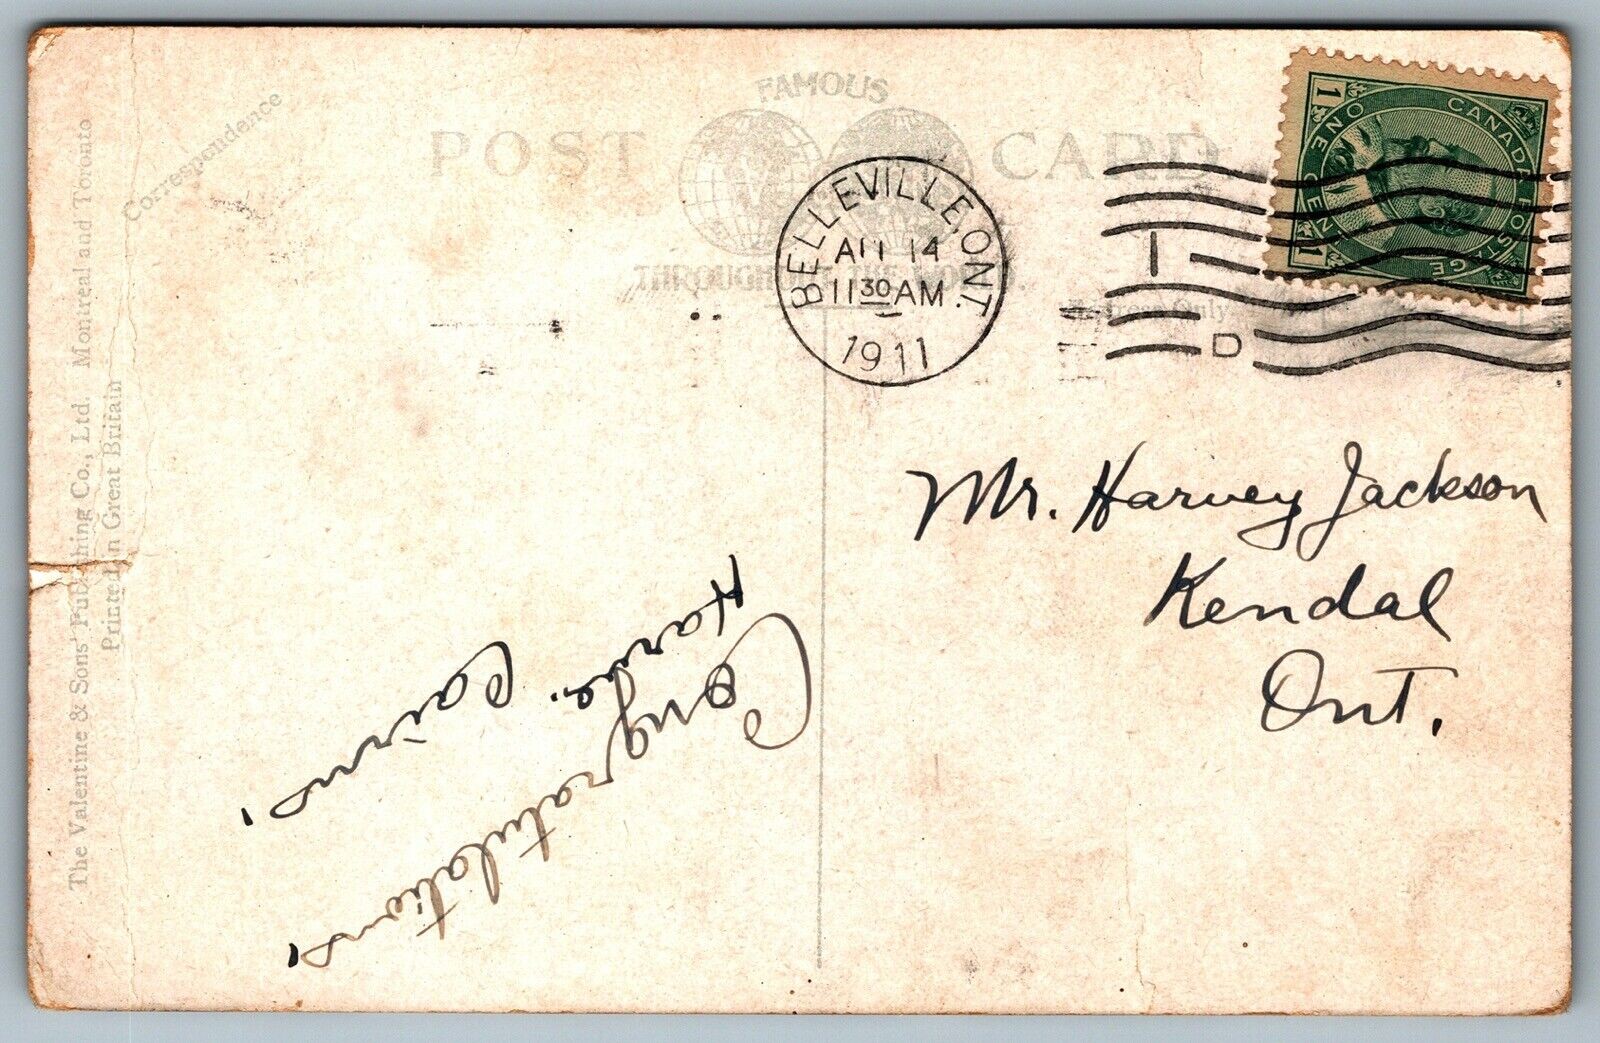 FAMOUS
POST CARD
THROUGHOUT THE WORLD.
Correspondence
The Valentine & Sons' Publishing Co., Ltd. Montreal and Toronto
Printed in Great Britain
BELLEVILLE, ONT.
14
11 30 AM
1911
I
D
CANADA POSTAGE
ONE CENT
1
1
Address Only
Mr. Harvey Jackson
Kendal
Ont.
Congratulations
Cairns